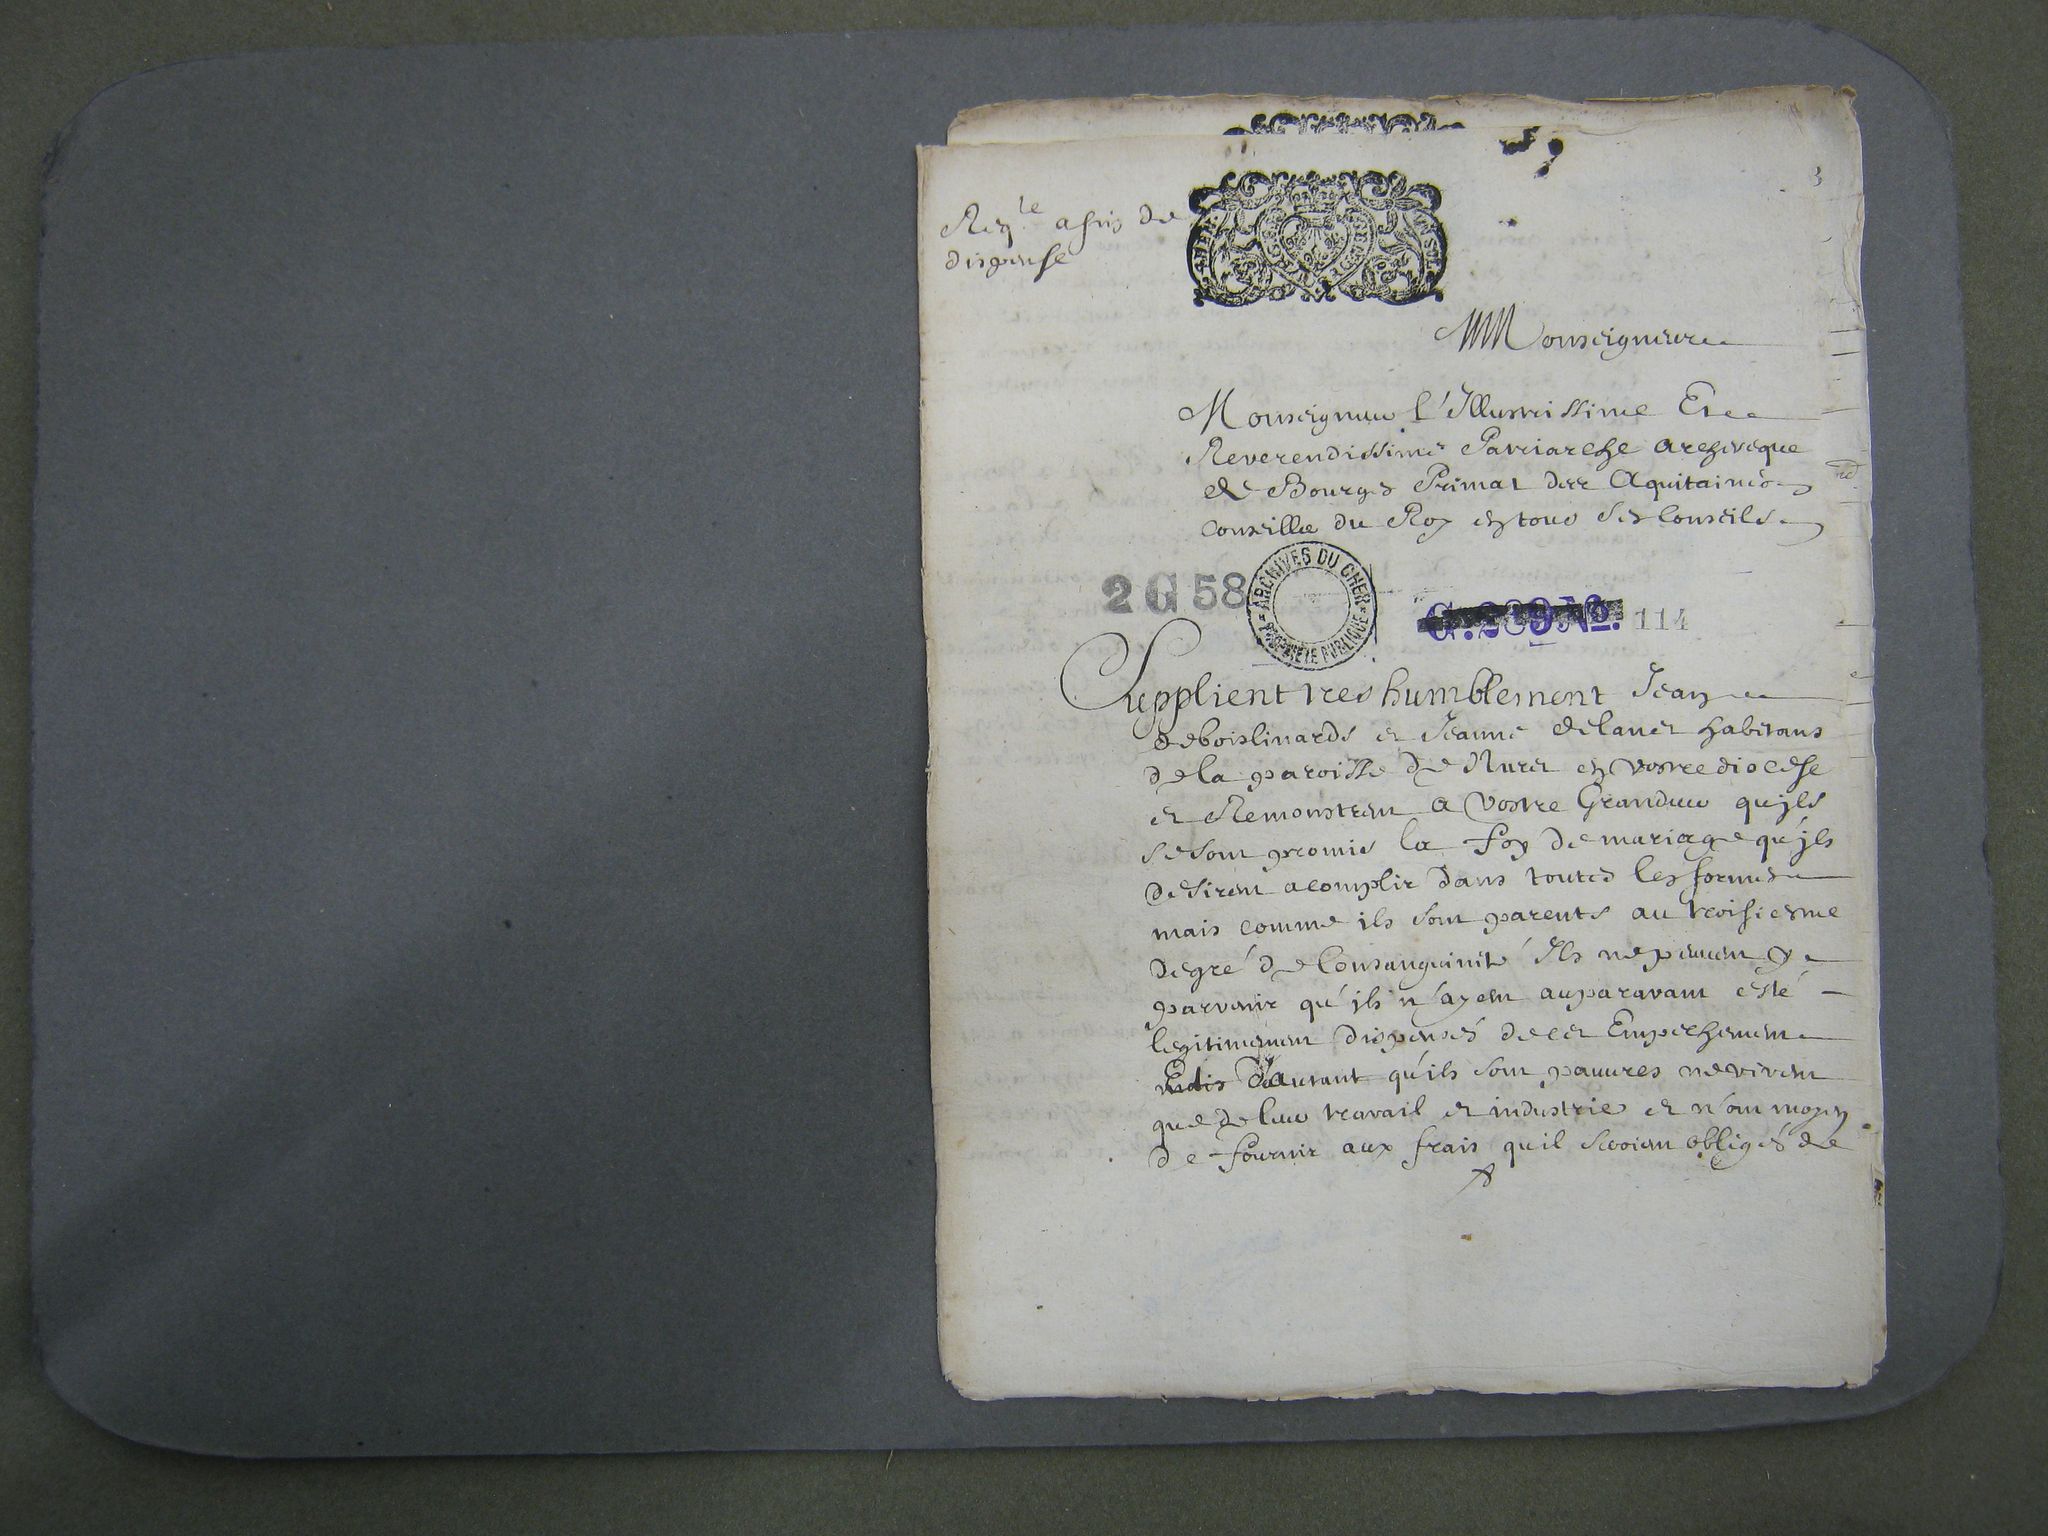 3
Reqte a fin de
dispense
Monseigneur
Monseigneur l'Illustrissime Et
Reverendissime Patriarche archeveque
de Bourges Primat des Aquitaines
conseiller du Roy en tous ses Conseils
2 G 58
ARCHIVES DU CHER
PROPRIETE PUBLIQUE
G. 209 No. 114
Supplient tres humblement Jean
deboislinards et Jeanne delanet habitans
de la paroisse de Nuret en vostre diocese
et Remonstrent a vostre Grandeur qu'jls
se sont promis la foy de mariage qu'jls
desirent acomplir dans toutes les formes
mais comme ils sont parents au troisiesme
degré de Consanguinité Ils ne peuuent y
parvenir qu'jls n'ayent auparavant esté
legitimement dispensés de cet Empechement
d'autant qu'ils sont pauures ne vivent
que de leur travail et industrie et n'ont moyen
de fournir aux frais quil seroient obligés de